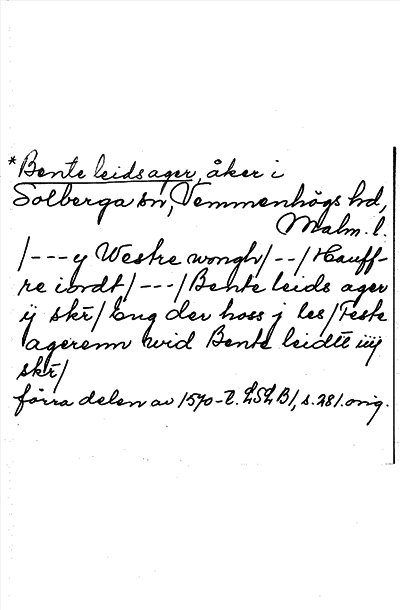 *Bente leidsager, åker i
Solberga sn, Vemmenhögs hd,
Malm. l.
/---y Westre wongh/--/Hauff-
re iordt/---/Bente leids ager
ij skr̄/ Eng der hoss j les/Teste
agerenn wid Bente leidtt iiij
skr̄/
förra delen av 1570-t. LSLB1, s. 281. orig.